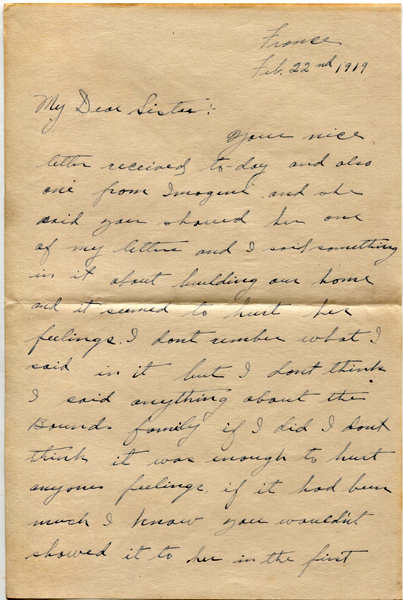 France
Feb. 22nd 1919
My Dear Sister:
Your nice
letter received to-day and also
one from Imogene and she
said you showed her one
of my letters and I said something
in it about building our home
and it seemed to hurt her
feelings. I dont rember what I
said in it but I dont think
I said anything about the
Bounds family if I did I dont
think it was enough to hurt
anyones feelings. if it had been
much I know you wouldn't
showed it to her in the first